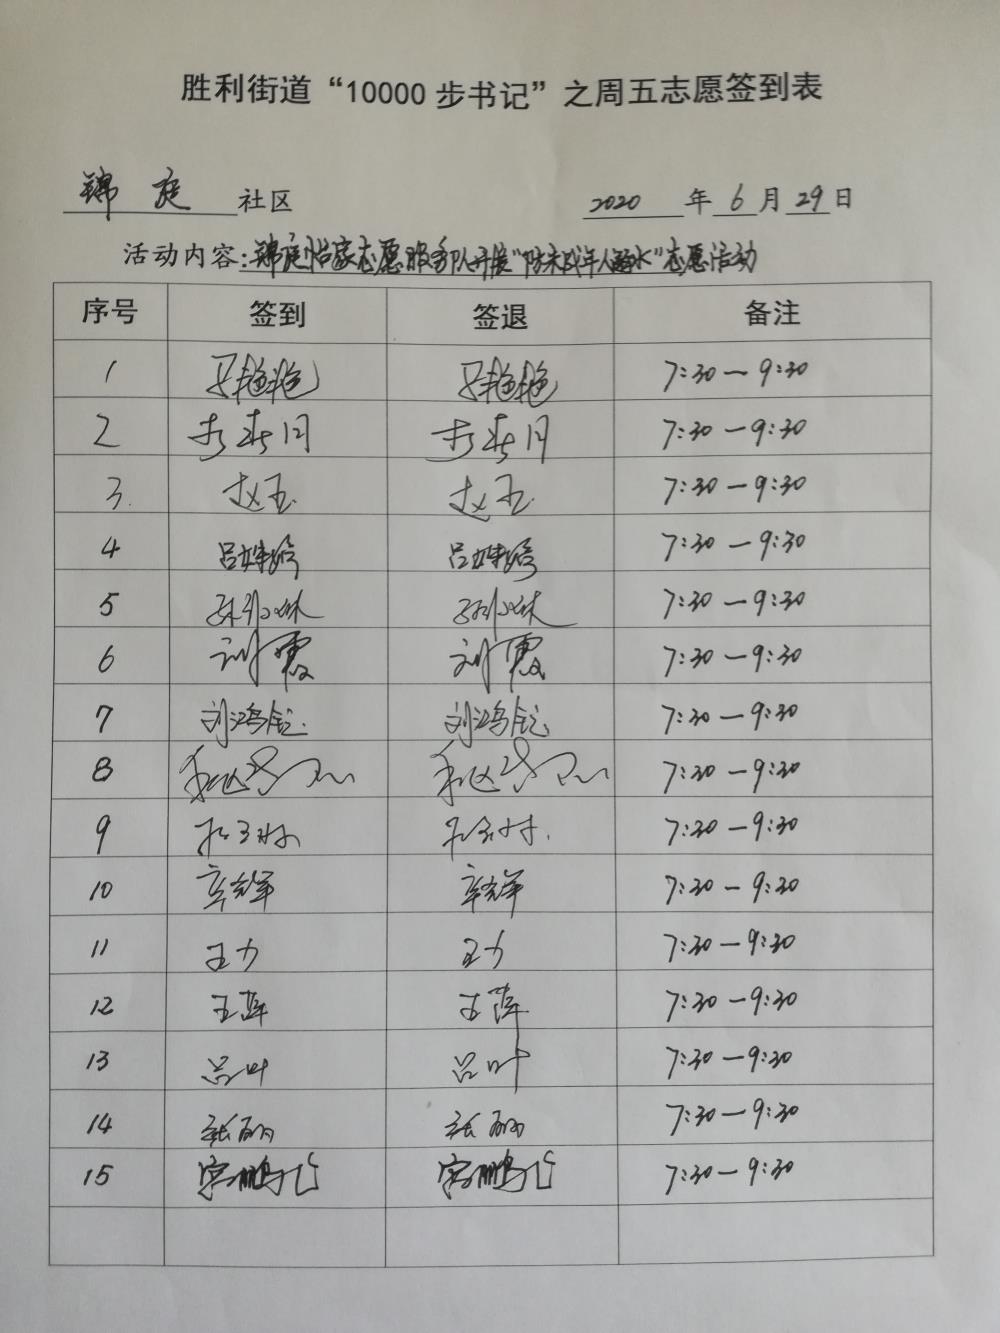 胜利街道“10000步书记”之周五志愿签到表
锦庭社区 2020年6月29日
活动内容:锦庭怡家志愿服务队开展“防未成年人溺水”志愿活动
序号 签到 签退 备注
1 艳艳 艳艳 7:30—9:30
2 7:30—9:30
3. 赵玉 赵玉 7:30—9:30
4 吕姝 吕姝 7:30—9:30
5 7:30—9:30
6 刘霞 刘霞 7:30—9:30
7 刘鸿 刘鸿 7:30—9:30
8 7:30—9:30
9 7:30—9:30
10 7:30—9:30
11 王力 王力 7:30—9:30
12 王萍 王萍 7:30—9:30
13 吕叶 吕叶 7:30—9:30
14 张丽 张丽 7:30—9:30
15 鹏飞 鹏飞 7:30—9:30